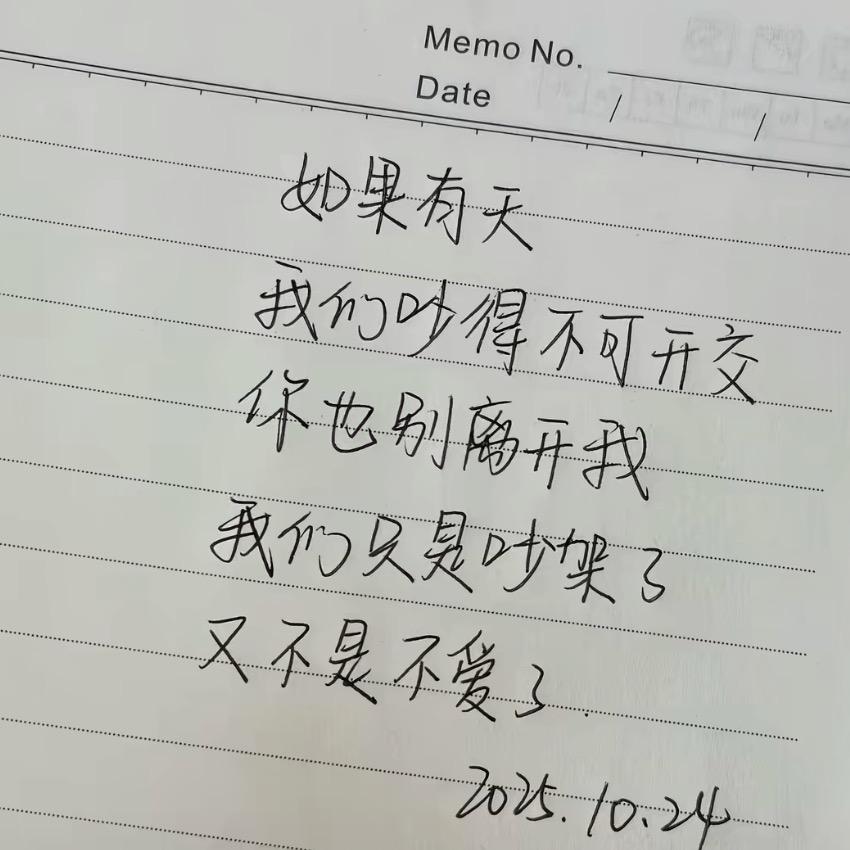 Memo No.
Date / /
如果有天
我们吵得不可开交
你也别离开我
我们只是吵架了
又不是不爱了.
2025.10.24